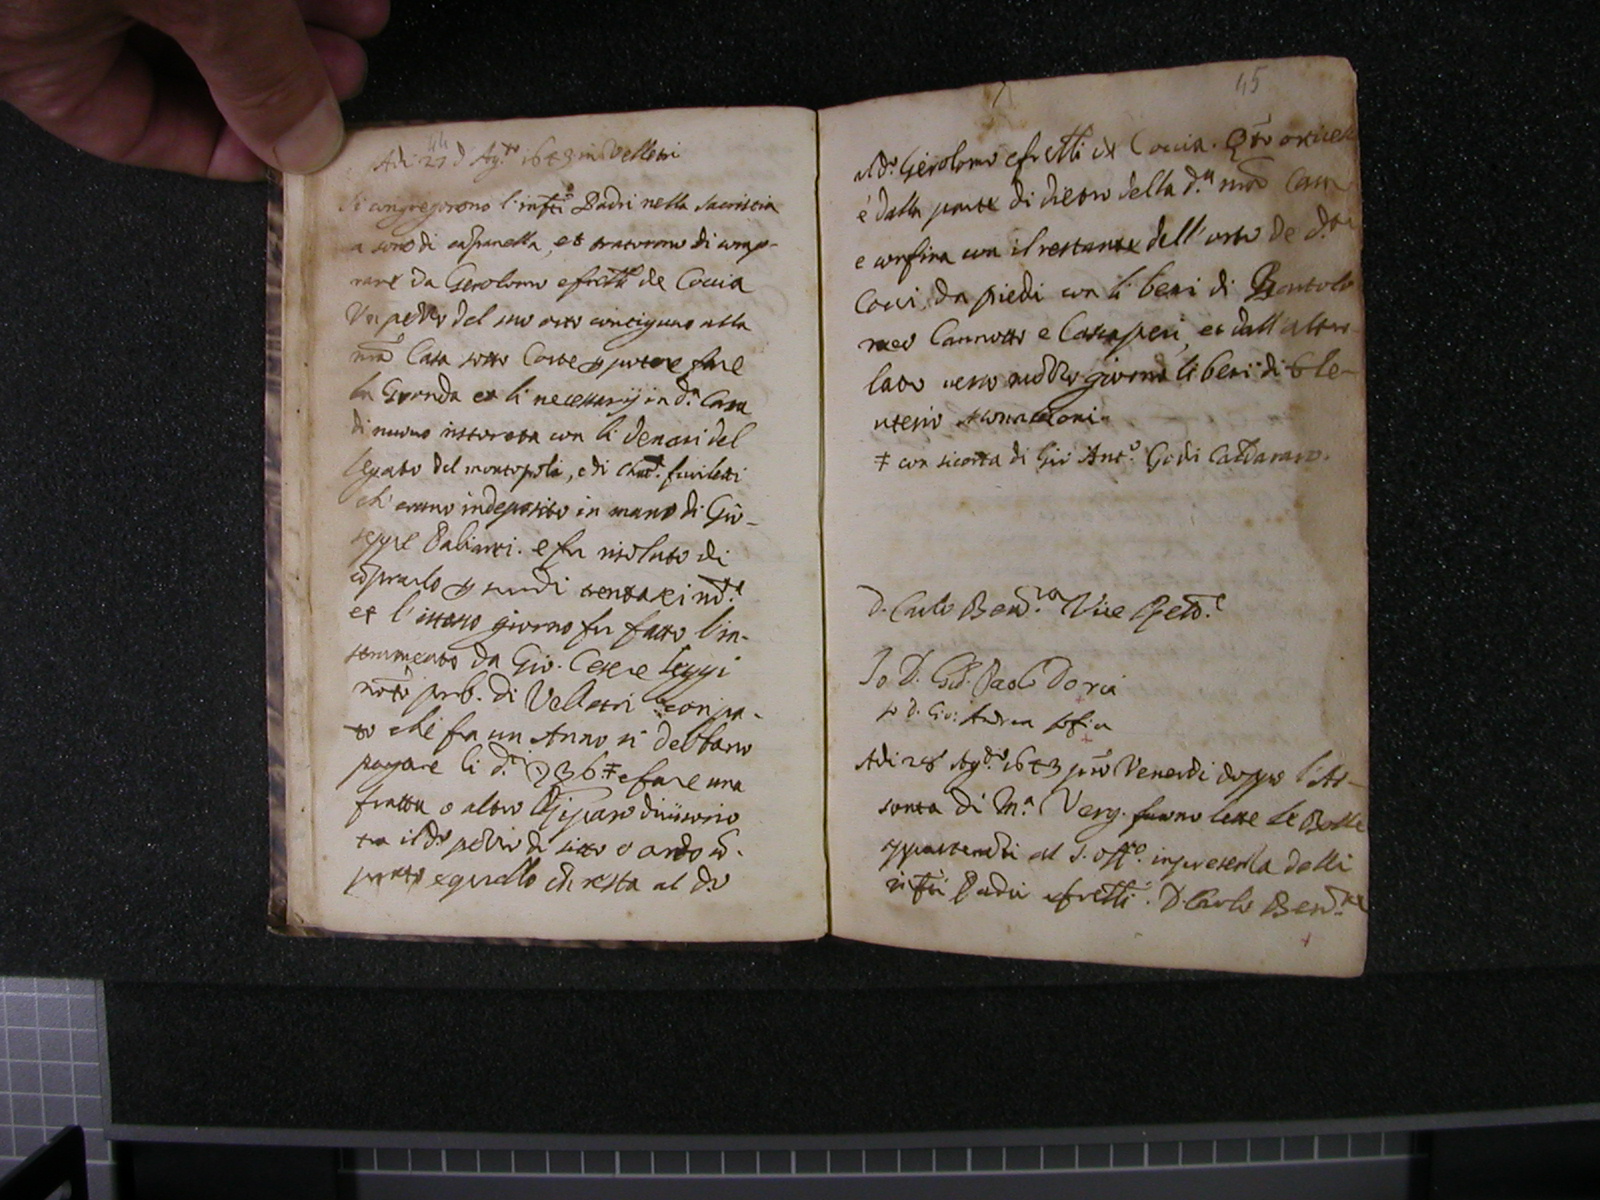 44
Adi 27 d Ag.to 1643 in Velletri
Si congregorono l'infti Padri nella sacristia
a sono di campanella, et trattorno di comp-
rare da Gerolomo e frelli de Coccia
Un pezzo del suo orto contiguo alla
nra Casa sotto Corte p potere fare
la Gronda et li necessarij in d.a Casa
di nuovo restorata con li denari del
legato del montopoli, e di
ch'erano in deposito in mano di Gio-
seppe Paliucci. e fu risoluto di
coprarlo p scudi trentasei mta
et l'istesso giorno fu fatto l'in-
strumento da Gio. Cesare Leggi
noto pub. di Velletri con pa-
to che fra un Anno si debbano
pagare li d.i 36 ‡ e fare una
fratta o altro Riparo divisorio
tra il do pezzo di sito o orto co-
prato e quello ch resta al do
45
al do Gerolomo e frelli de Coccia. Qto orticello
è dalla parte di dietro della d.a nra Casa
e confina con il restante dell'orto de d.ti
Cocci, da piedi con li beni di Bartolo
meo Cannotto e et dall'altro
lato verso mezzo giorno li beni di Ele-
uterio
‡ con sicorta di Gio Ant.o
D. Carlo Bend.ra Vice Rett.e
Io D. Gio. Paolo Doria
Io D. Gio: Andrea
Adi 28 Ag.to 1643 pmo Venerdi doppo l'As-
sonta di M.a Verg. furno lette le Bolle
appartenenti al S. Offo. in presenza delli
infti Padri e frelli. D. Carlo Bend.ra